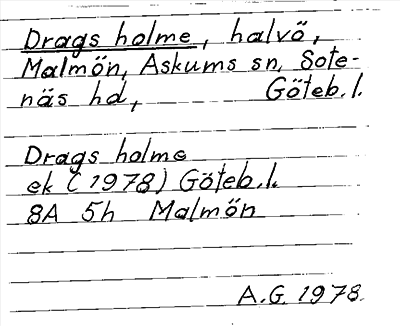 Drags holme, halvö,
Malmön, Askums sn, Sote-
näs hd, Göteb. l.
Drags holme
ek (1978) Göteb. l.
8A 5h Malmön
A.G. 1978.